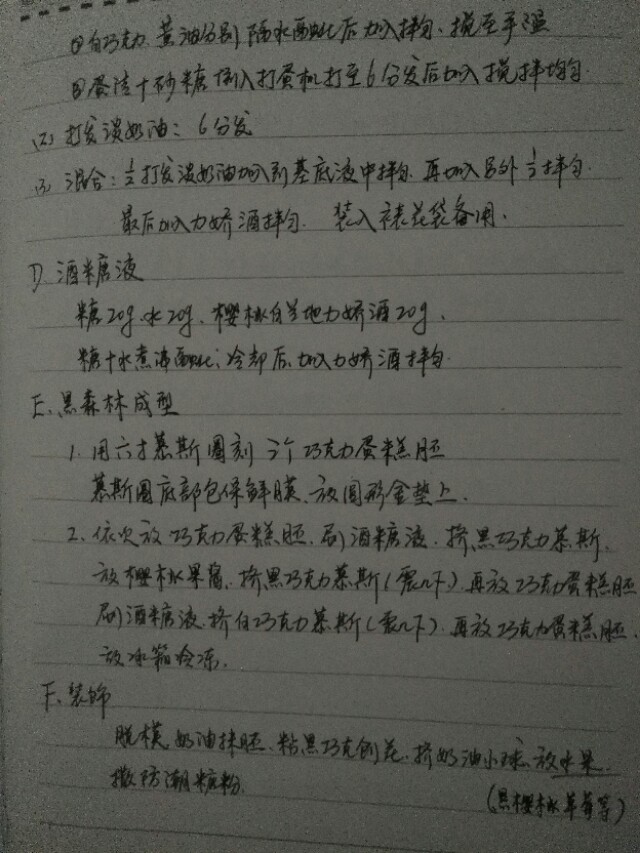 ①白巧克力、黄油分别隔水融化后加入拌匀,搅至手温
②蛋清+砂糖倒入打蛋机打至6分发后加入搅拌均匀.
(2) 打发淡奶油: 6分发
(3) 混合: ½打发淡奶油加入到基底液中拌匀,再加入另外½拌匀.
最后加入力娇酒拌匀. 装入裱花袋备用.
D. 酒糖液
糖20g、水20g、樱桃白兰地力娇酒20g.
糖+水煮沸融化;冷却后,加入力娇酒拌匀.
E. 黑森林成型
1. 用六寸慕斯圈刻3个巧克力蛋糕胚
慕斯圈底部包保鲜膜、放圆形金垫上.
2. 依次放巧克力蛋糕胚、刷酒糖液、挤黑巧克力慕斯、
放樱桃果腐、挤黑巧克力慕斯(震几下).再放巧克力蛋糕胚
刷酒糖液、挤白巧克力慕斯(震几下).再放巧克力蛋糕胚.
放冰箱冷冻.
F. 装饰
脱模、奶油抹胚、粘黑巧克刨花、挤奶油小球、放水果
撒防潮糖粉. (黑樱桃草莓等)